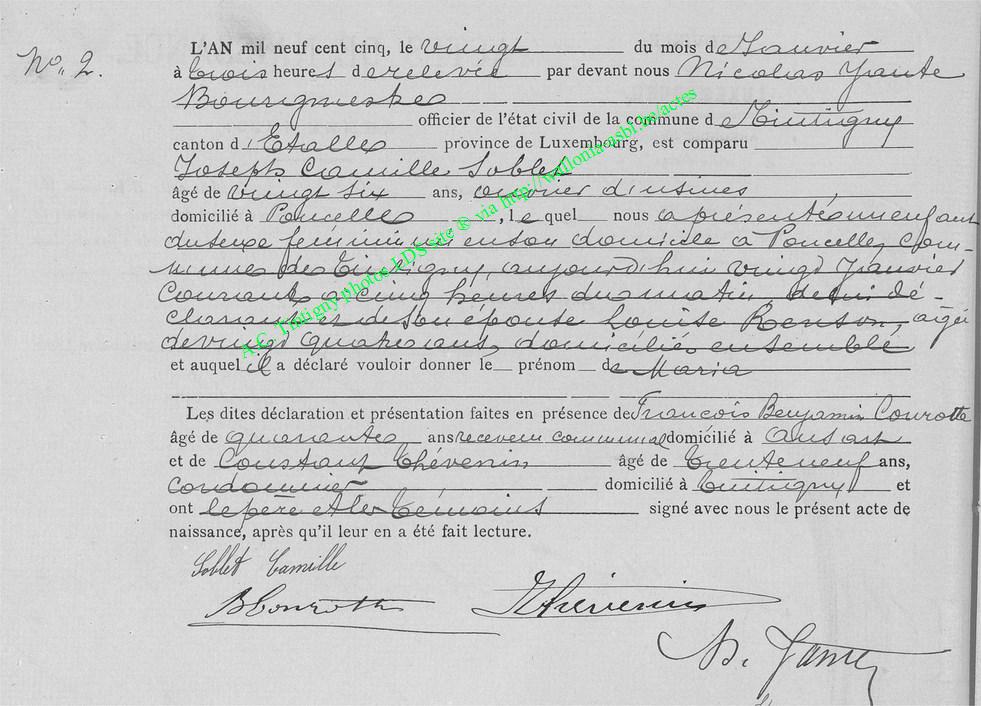 No. 2.
L'AN mil neuf cent cinq, le vingt du mois de Janvier
à trois heures de relevée par devant nous Nicolas
Bourgmestre
officier de l'état civil de la commune de Tintigny
canton d'Etalle province de Luxembourg, est comparu
Joseph Camille Soblet
âgé de vingt six ans, ouvrier d'usines
domicilié à Poncelle, lequel nous a présenté un enfant
du sexe féminin, né en son domicile à Poncelle, com-
mune de Tintigny, aujourd'hui vingt Janvier
courant à cinq heures du matin, de lui dé-
clarant et de son épouse Louise Renson, agée
de vingt quatre ans, domiciliés ensemble
et auquel il a déclaré vouloir donner le prénom de Maria
Les dites déclaration et présentation faites en présence de François Benjamin Courotte
âgé de quarante ans receveur communal domicilié à Ansart
et de Constant Thévenin âgé de trente neuf ans,
cordonnier domicilié à Tintigny et
ont le père et les témoins signé avec nous le présent acte de
naissance, après qu'il leur en a été fait lecture.
Soblet Camille
B Courotte Thévenin
N.
A.C. Tintigny photos LDS site ® via http://wallonia-asbl.be/actes